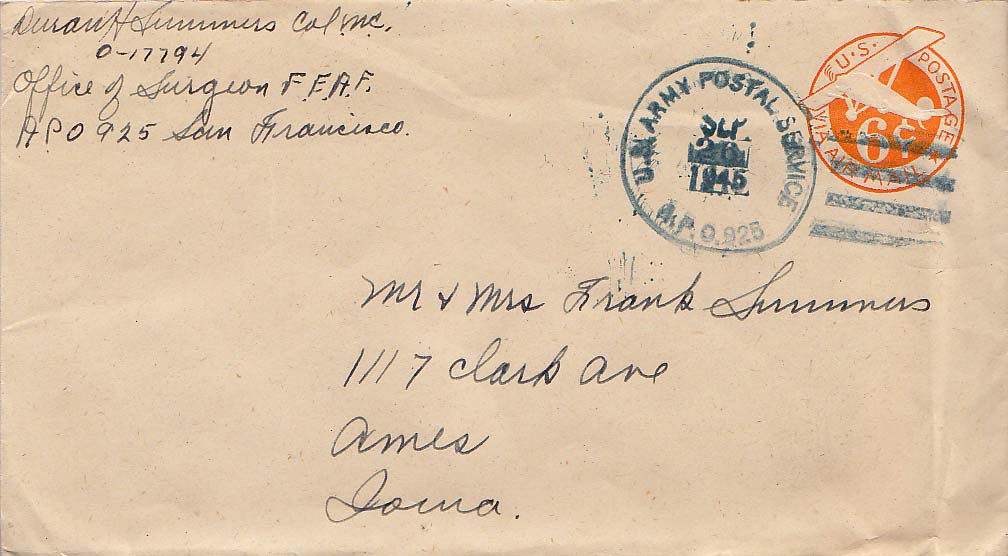 Duran H Summers Col. MC.
O-17794
Office of Surgeon F.E.A.F.
A.P.O 925 San Francisco.
U.S. ARMY POSTAL SERVICE
SEP
26
1945
A.P.O. 925
U.S. POSTAGE
6¢
VIA AIR MAIL
Mr & Mrs Frank Summers
1117 Clark Ave
Ames
Iowa.